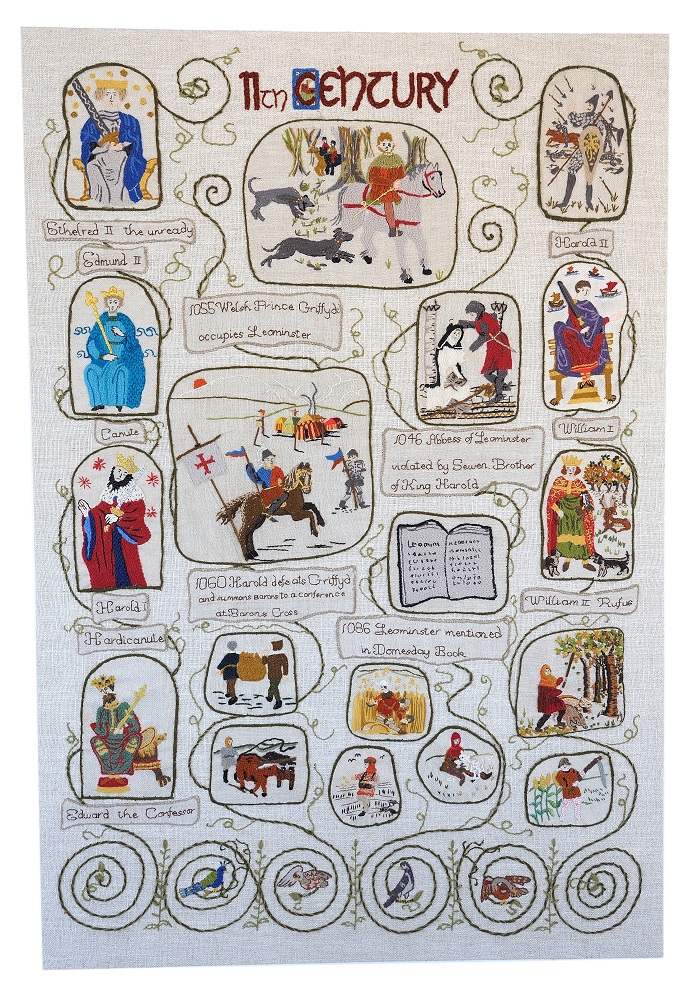 11th CENTURY
Ethelred II the unready
Edmund II
Harold II
1055 Welsh Prince Griffyd
occupies Leominster
Canute
William I
1046 Abbess of Leominster
violated by Sewen, Brother
of King Harold
Harold I
Hardicanute
1060 Harold defeats Griffyd
and summons barons to a conference
at Barons Cross
William II Rufus
1086 Leominster mentioned
in Domesday Book
Edward the Confessor